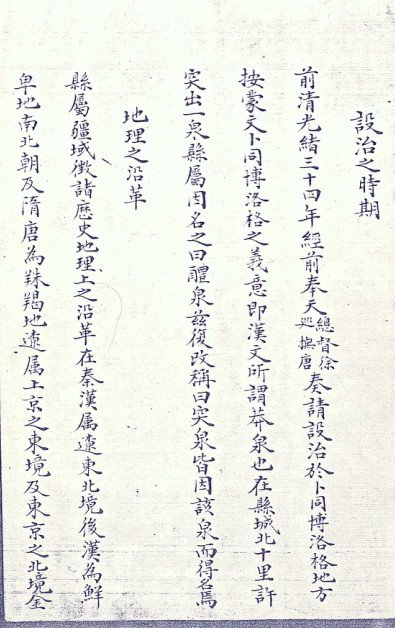 設治之時期
前清光緒三十四年經前奉天總督徐巡撫唐奏請設治於卜同博洛格地方
按蒙文卜同博洛格之義意即漢文所謂莽泉也在縣城北十里許
突出一泉縣屬因名之曰醴泉茲復改稱曰突泉皆因該泉而得名焉
地理之沿革
縣屬疆域徵諸歷史地理上之沿革在秦漢属遼東北境後漢為鮮
卑地南北朝及隋唐為靺鞨地遼属上京之東境及東京之北境金